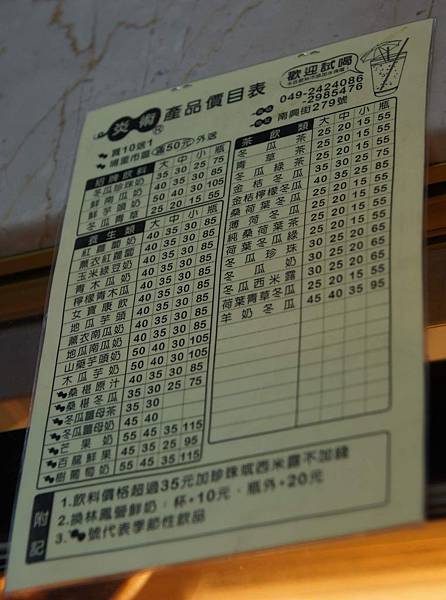 炎術® 產品價目表
歡迎試喝
049-2424086
-2985476
南興街279號
買10送1
埔里市區滿50元外送
招牌飲料 大 中 小 瓶
冬瓜珍珠奶 35 30 25 75
鮮南瓜奶 40 35 30 85
鮮芋頭奶 50 40 30 105
冬瓜青草 25 20 15 55
養生類 大 中 小 瓶
紅蘿蔔奶 40 35 30 85
薰衣紅蘿蔔 40 35 30 85
玉米綠豆奶 40 35 30 85
青木瓜奶 40 35 30 85
檸檬青木瓜 40 35 30 85
女寶康飲 40 35 30 85
地瓜芋頭 40 35 30 85
薰衣南瓜奶 40 35 30 85
地瓜南瓜奶 40 35 30 85
山藥芋頭奶 50 40 30 105
木瓜芋奶 50 40 30 105
桑椹原汁 40 35 30 85
桑椹冬瓜 35 30 25 75
冬瓜薑母茶 35 30
冬瓜薑母奶 45 40
芒果奶 55 45 35 115
百香鮮果 45 40 35 95
樹葡萄奶 55 45 35 115
茶飲類 大 中 小 瓶
冬瓜茶 25 20 15 55
青草茶 25 20 15 55
冬瓜綠茶 25 20 15 55
金桔冬瓜 30 25 20 65
金桔檸檬冬瓜 30 25 20 65
桑荷葉冬瓜 25 20 15 55
薄荷冬瓜 25 20 15 55
純桑荷葉茶 25 20 15 55
荷葉冬瓜綠 25 20 15 55
冬瓜珍珠 30 25 20 65
冬瓜奶 30 25 20 65
冬瓜西米露 30 25 20 65
荷葉青草冬瓜 25 20 15 55
羊奶冬瓜 45 40 35 95
附記
1.飲料價格超過35元加珍珠或西米露不加錢
2.換林鳳營鮮奶，杯+10元，瓶外+20元
3.號代表季節性飲品